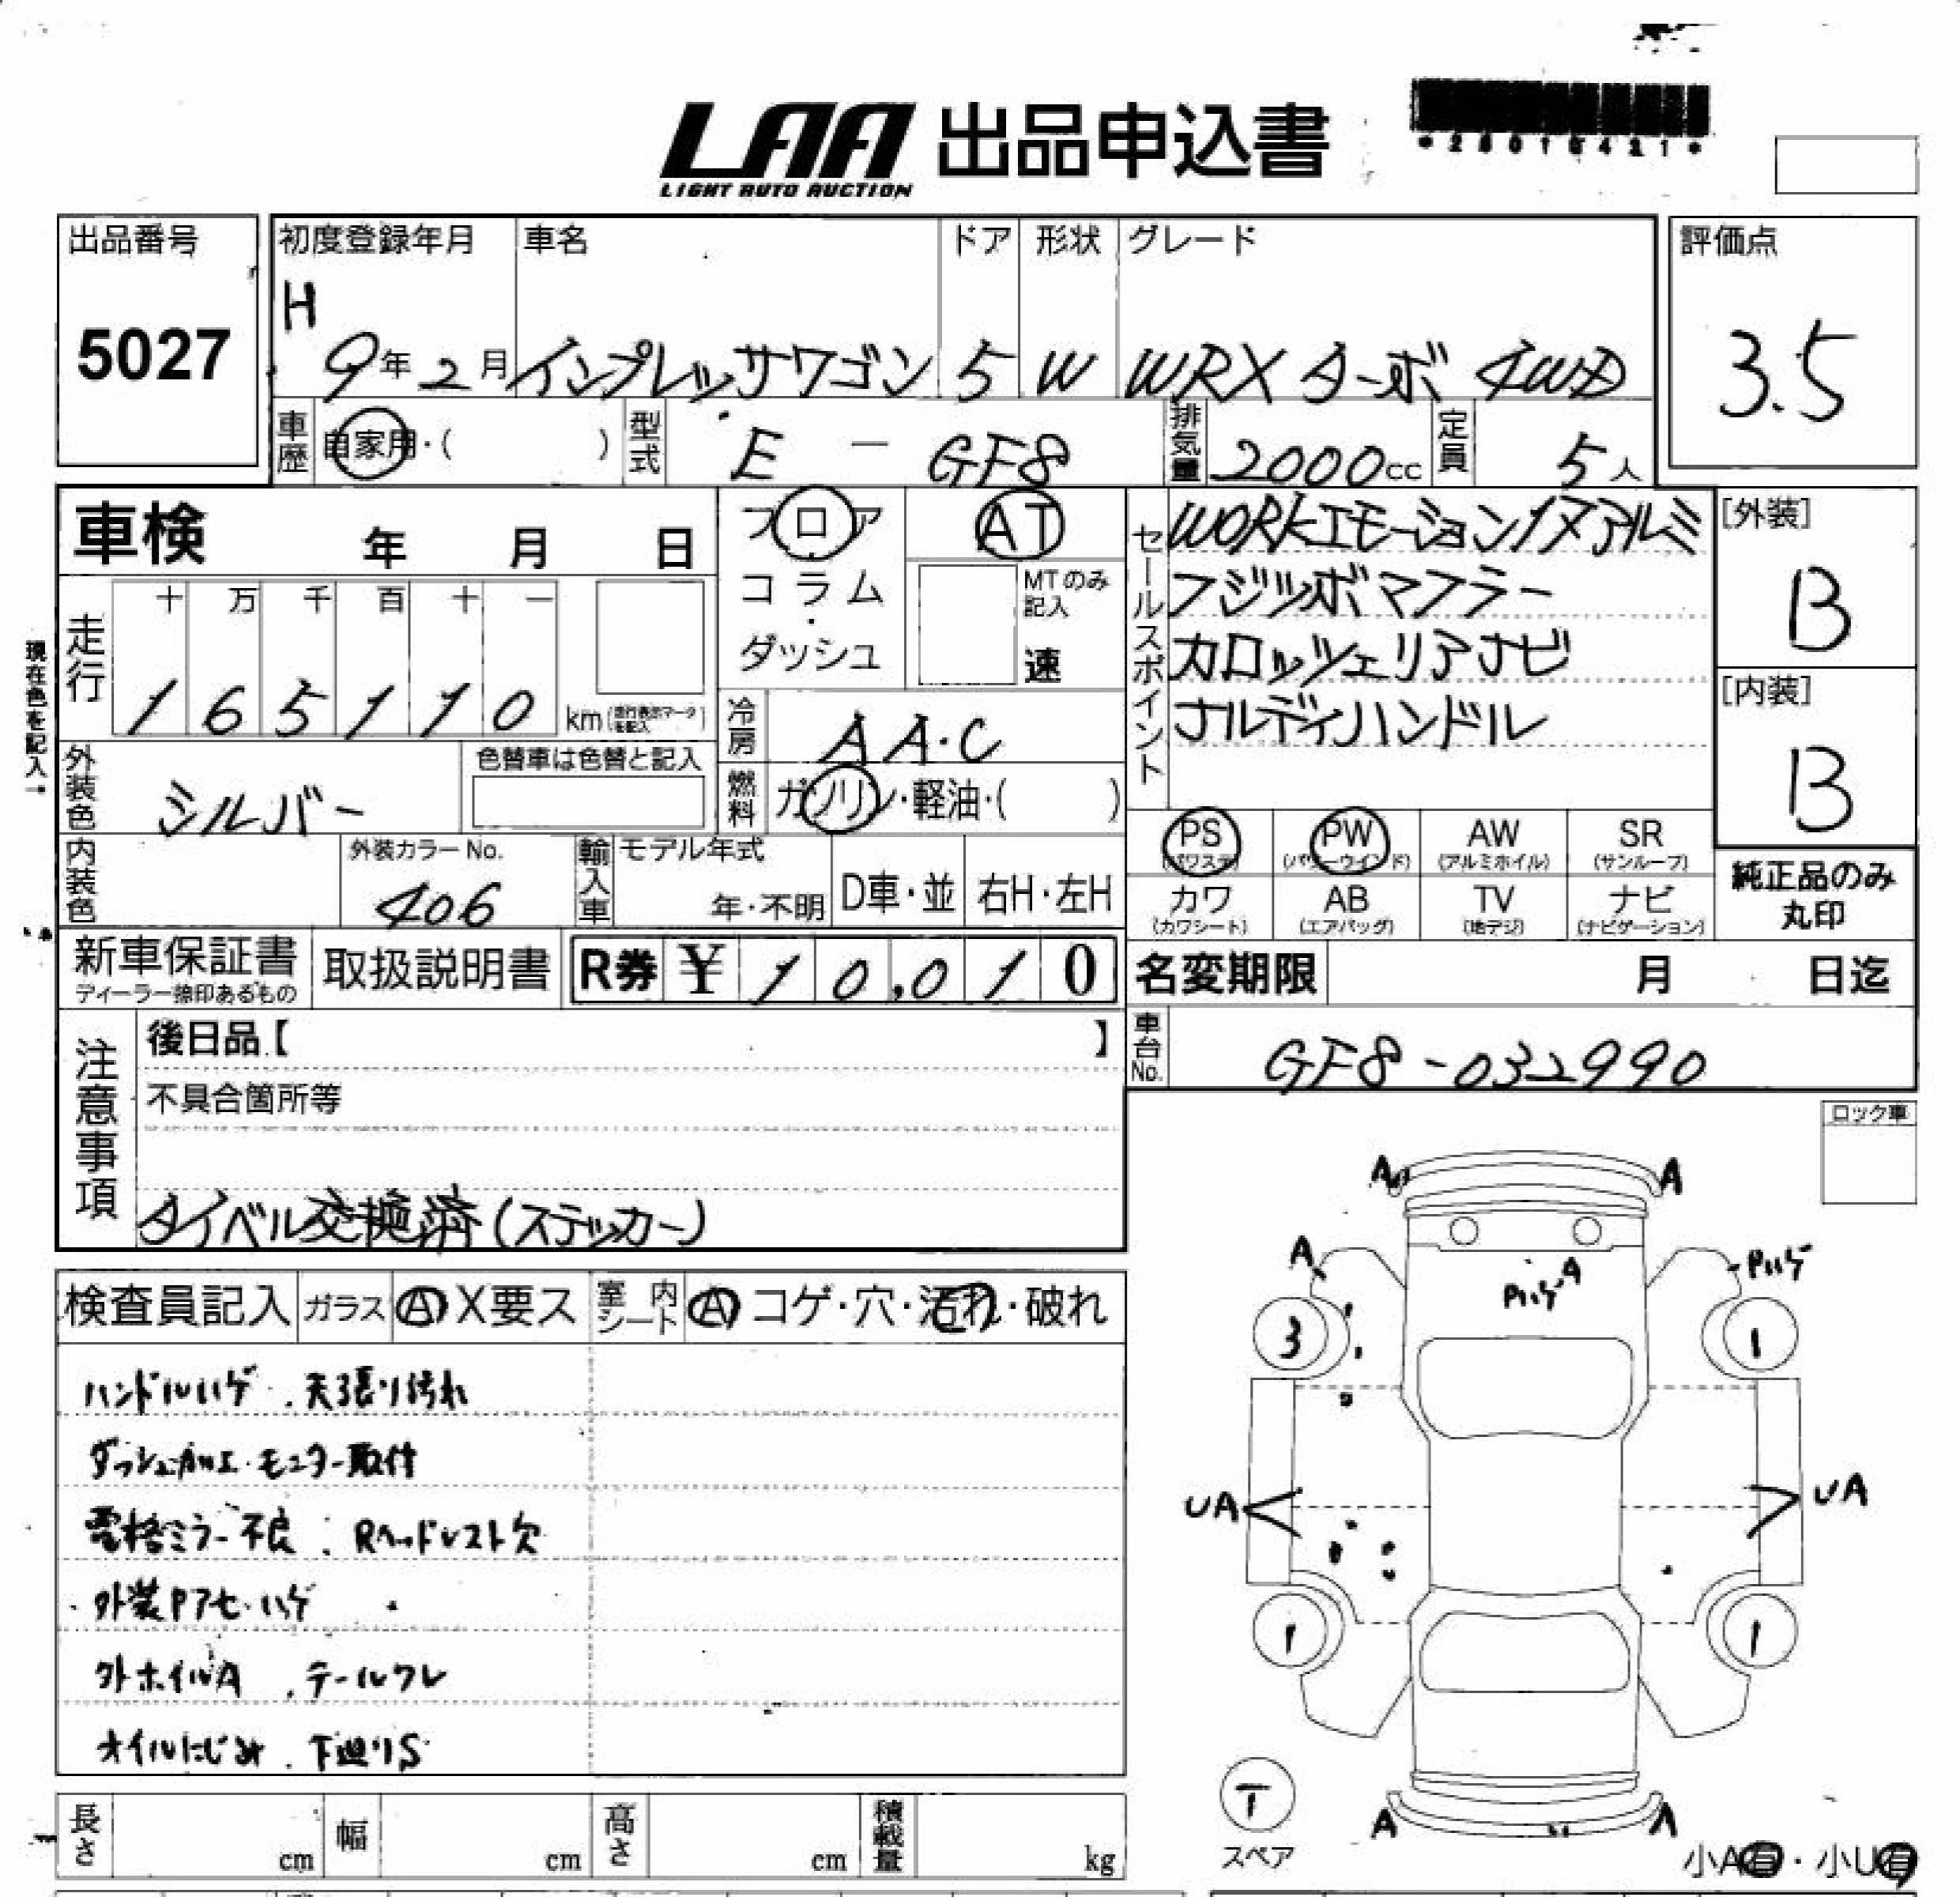 LAA 出品申込書
LIGHT AUTO AUCTION
出品番号
5027
初度登録年月 車名 ドア 形状 グレード
H 9年2月 インプレッサワゴン 5 W WRXターボ 4WD
評価点
3.5
車歴 自家用・( ) 型式 E - GF8 排気量 2000cc 定員 5人
車検 年 月 日
フロア・コラム・ダッシュ
AT
MTのみ記入
速
セールスポイント
WORKエモーション17アルミ
フジツボマフラー
カロッツェリアナビ
ナルディハンドル
[外装]
B
[内装]
B
現在色を記入
走行
十 万 千 百 十 一
1 6 5 1 1 0 km
冷房 AAC
外装色 シルバー 色替車は色替と記入
燃料 ガソリン・軽油・( )
内装色 外装カラーNo. 406
輸入車 モデル年式 年・不明 D車・並 右H・左H
PS (パワステ) PW (パワーウインド) AW (アルミホイル) SR (サンルーフ)
カワ (カワシート) AB (エアバッグ) TV (地デジ) ナビ (ナビゲーション)
純正品のみ
丸印
新車保証書 取扱説明書 R券 ¥10,010
ディーラー捺印あるもの
名変期限 月 日迄
車台No. GF8-032990
注意事項
後日品【 】
不具合箇所等
タイベル交換済(ステッカー)
ロック車
検査員記入 ガラス A X要ス 室内シート A コゲ・穴・汚れ・破れ
ハンドルハゲ.天張り汚れ
ダッシュ加工.モニター取付
電格ミラー不良.Rヘッドレスト欠
外装Pアセ.ハゲ
外ホイルA.テールワレ
オイルにじみ.下廻りS
A A
A Pハゲ A Pハゲ
3 1
UA UA
1 1
T
スペア
A A
小A有・小U有
長さ cm 幅 cm 高さ cm 積載量 kg